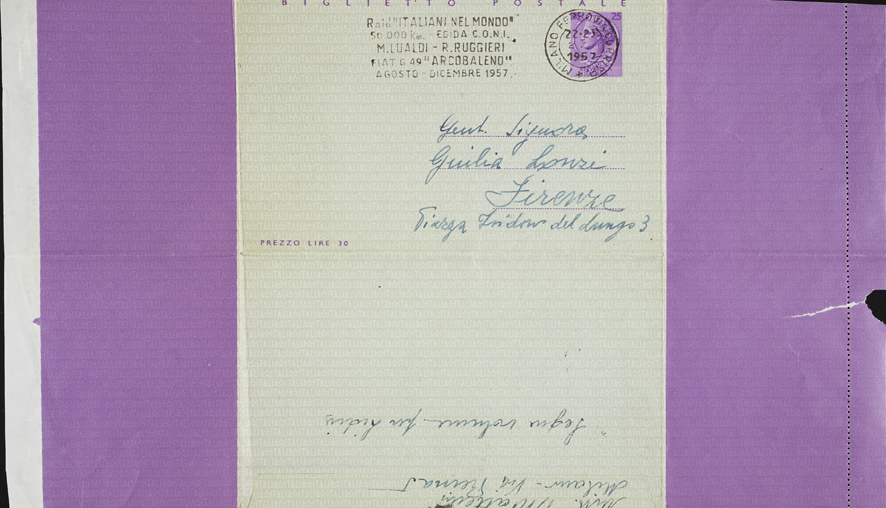 BIGLIETTO POSTALE
RAID "ITALIANI NEL MONDO"
50.000 Km. - EDIDA C.O.N.I.
M. LUALDI - R. RUGGIERI
FIAT G 49 "ARCOBALENO"
AGOSTO - DICEMBRE 1957
MILANO
22-23
1957
25
Gent. Signora
Giulia
Firenze
Piazza del Lungo 3
PREZZO LIRE 30
Segue volume per
Milano - Via